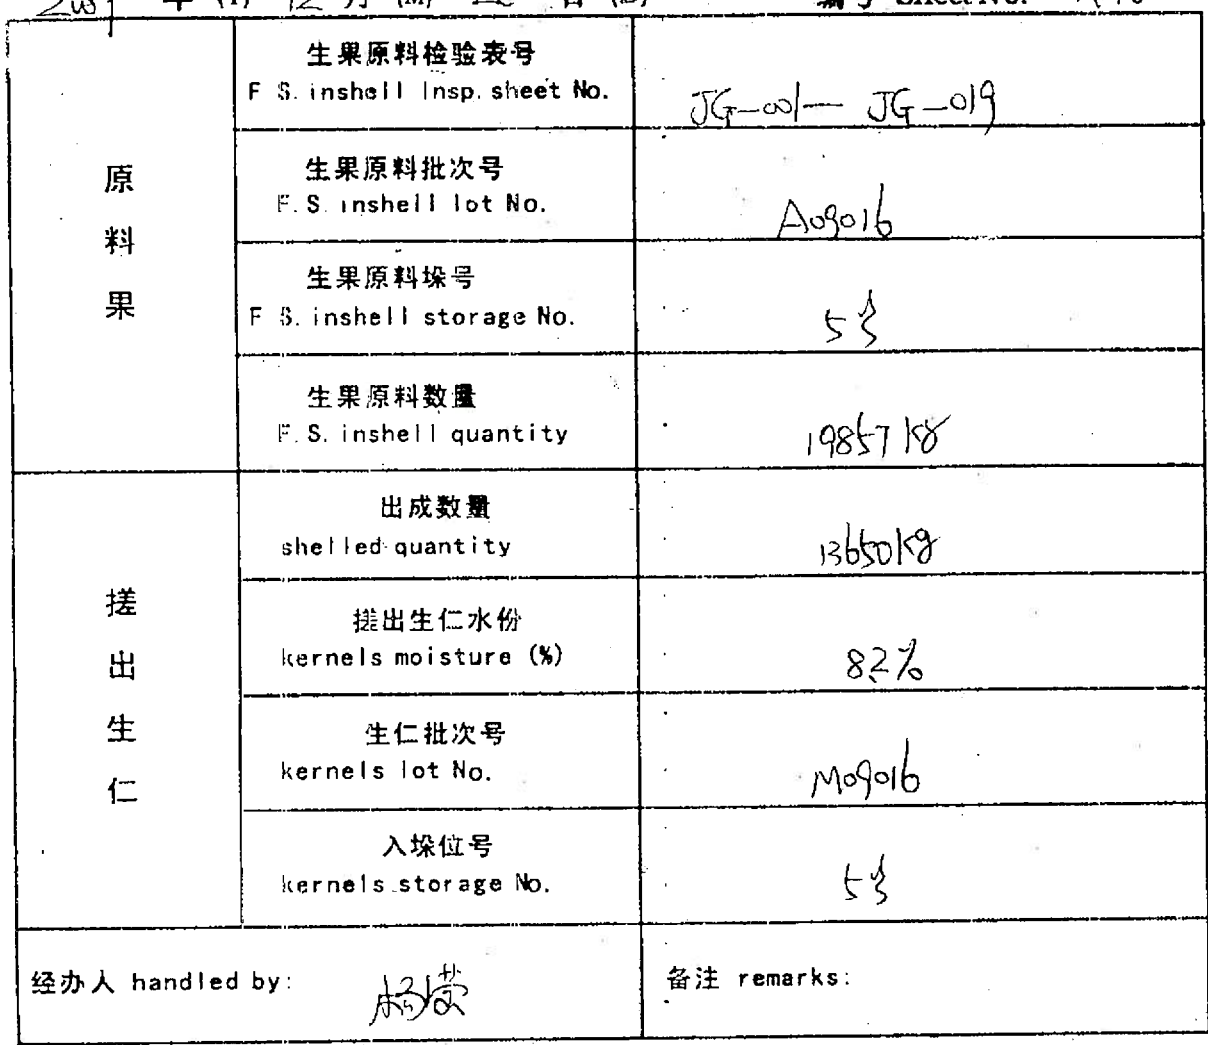 生果原料检验表号
F S. inshell Insp. sheet No.
JG-001— JG-019
原料果
生果原料批次号
F.S. inshell lot No.
A09016
生果原料垛号
F S. inshell storage No.
5号
生果原料数量
F.S. inshell quantity
19857 kg
搓出生仁
出成数量
shelled quantity
13650kg
搓出生仁水份
kernels moisture (%)
8.2%
生仁批次号
kernels lot No.
M09016
入垛位号
kernels storage No.
5号
经办人 handled by:
备注 remarks: